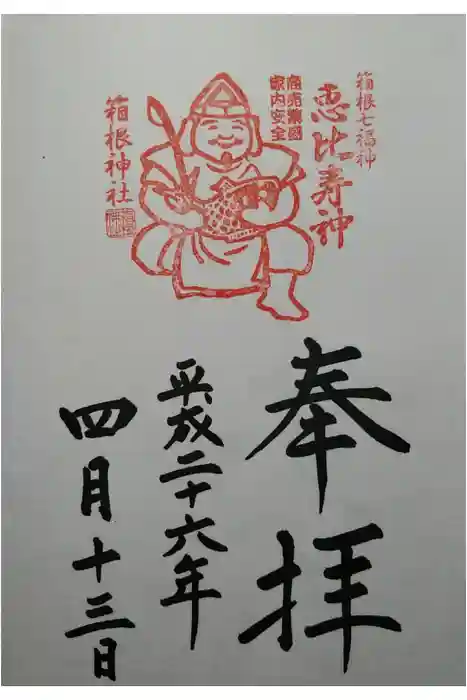 箱根七福神
恵比寿神
商売繁国
家内安全
箱根神社
奉拝
平成二十六年
四月十三日